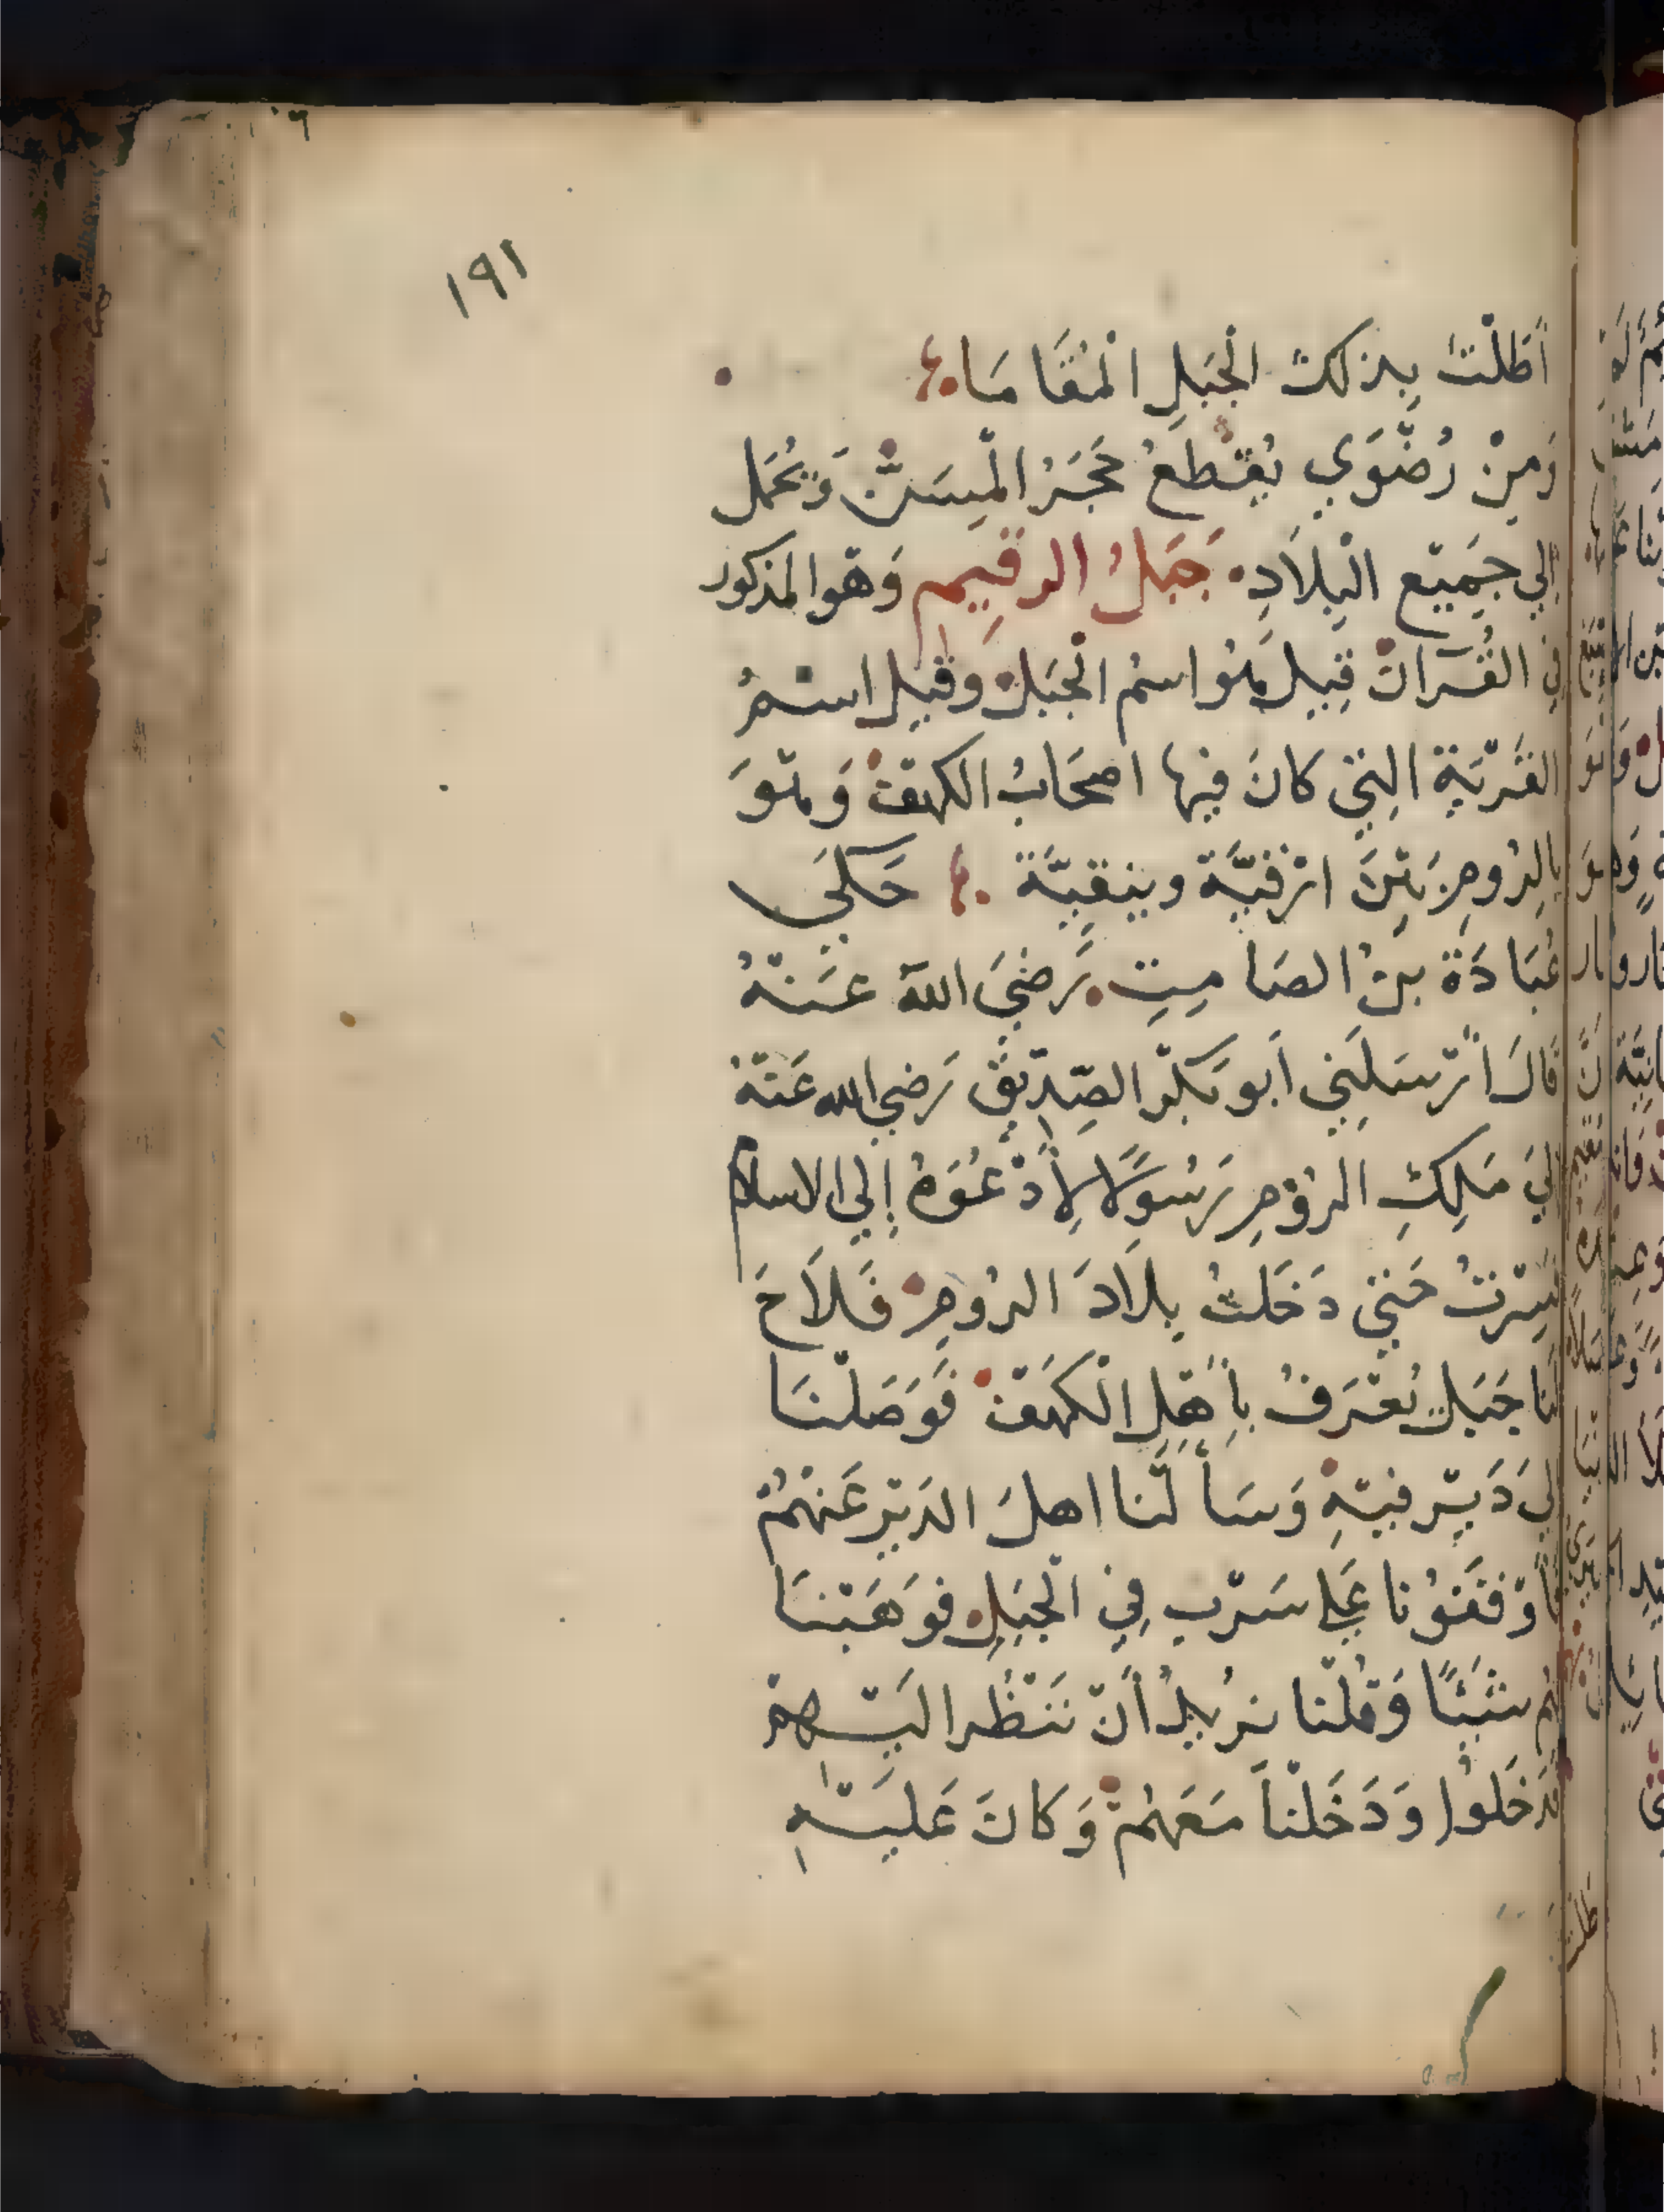 ١٩١
أَطَلْتَ بِذلكَ الْجَبَلِ الْمُقَامَا
وَمِنْ رُضْوَي يُقْطَعُ حَجَرُ الْمِسَنِّ وَيُحْمَل
إلي جَمِيْع الْبِلاَدِ جَبَلُ الرقِيمِ وَهْوا لمذكور
في القُرآن قِيلَ هُوا سمُ الْجَبَلْ وقيلَ اسْمُ
القَرْيَةِ الِتي كانَ فيها اصحَابُ الكهْفْ وَهْوَ
بالرُومِ بَيْنَ
عُبَادَةَ بنْ الصَامِتِ رَضيَ اللهَ عَنْهُ
قالَ أَرْسَلَنِي أبو بَكْر الصِّدِيْق رَضي الله عَنْهُ
إليَ مَلِكِ الرُوْمِ رَسُوْلاً لِأَدْعُوَهُ إلي الاسلام
فَسِرْتُ حَتي دَخَلتُ بِلاَدَ الرُومِ فَلاَحَ
لَنا جَبَلٌ يُعْرَفُ بِأَهْلِ الْكَهْفْ فَوَصَلْنَا
إليَ دَيْر فيْهِ وَسَأَلْنا اهلَ الدَيْرِ عَنْهُمْ
فَأَوْقَفُوْنا عَلي سَرْبٍ فِي الْجَبَلِ فوَهَبْنَا
لهُم شَيْئًا وَقُلْنا نرُيدُ أَنْ نَنْظُر الَيْهِمْ
فدَخَلوُا وَدَخَلْنَا مَعَهُمْ وَكانَ عَلَيْهِ